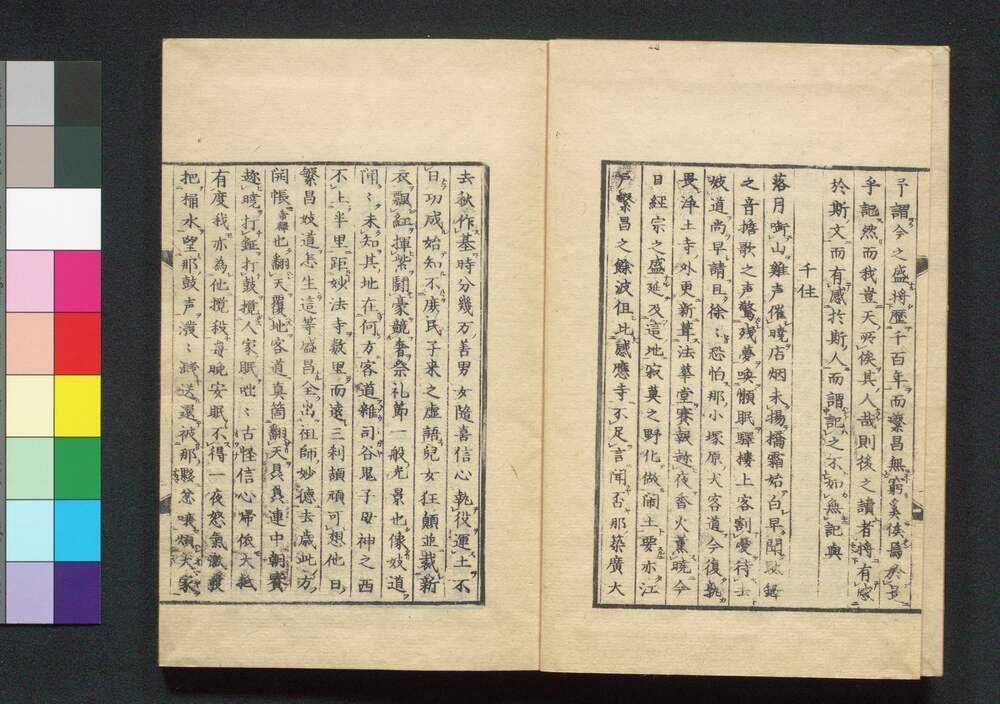 予謂今之盛将歴千百年而繁昌無窮奚俟焉於
乎記然而我豈天所俟其人哉則後之讀者将有
於斯文而有感於斯人而謂記之不如無記與
千住
落月啣山雞声催暁店烟未揚橋霜始白早聞
之音擔歌之声驚残夢喚願眠驛樓上客割愛待士
妓道尚早請且徐〻恐怕那小塚原犬客道今復執
畏浄土寺外更新葺法華堂賽報迹夜香火薫暁今
日経宗之盛延及這地寂莫之野化做閙土要亦江
戸繁昌之餘波但此感應寺不足言聞否那築廣大
去秋作基時分幾万善男女隨喜信心執役運土不
日功成始知不庶民子来之虚語兒女狂顛並裁新
衣飄紅揮紫鬪豪競奢祭礼節一般光景也像妓道
閙〻未知其地在何方客道雜司谷鬼子母神之西
不上半里距妙法寺数里而遠三刹頡頏可想他日
繁昌妓道怎生這等盛昌全出祖師妙徳去歳此方
開帳也翻天覆地客道真箇翻天具真連中朝賽
趂暁打鉦打鼓攪人家眠咄〻古怪信心帰依大抵
有度我亦為他攪殺竟晩安眠不得一夜怨氣激發
把桶水望那鼓声溌〻送還被那夥忿嘆煩大家